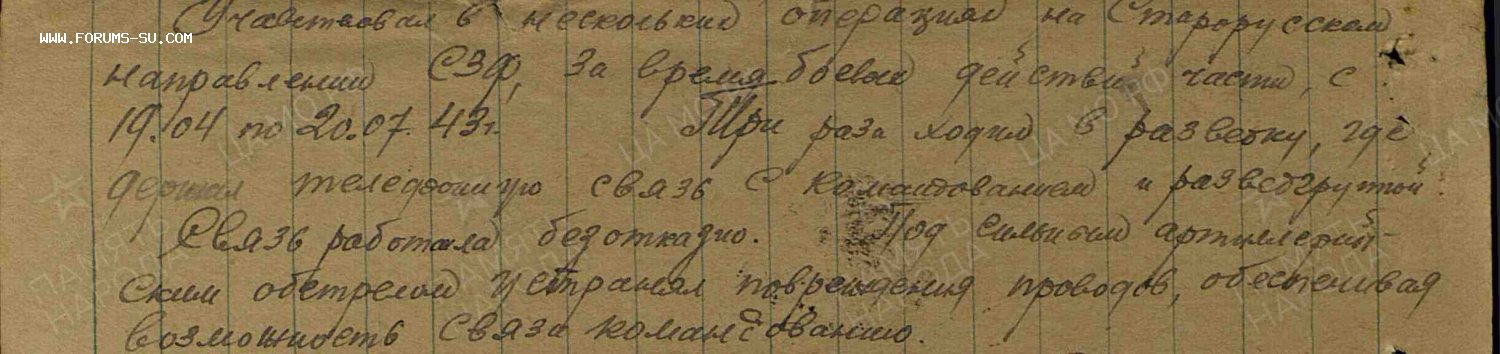 Участвовал в нескольких операциях на Старорусском
WWW.FORUMS-SU.COM
направлении СЗФ, за время боевых действий части, с
19.04 по 20.07.43г. Три раза ходил в разведку, где
держал телефонную связь с командованием и разведгруппой.
Связь работала безотказно. Под сильным артиллерий-
ским обстрелом устранял повреждения проводов, обеспечивая
возможность связи командованию.
ПАМЯТЬ НАРОДА
ЦА МО РФ